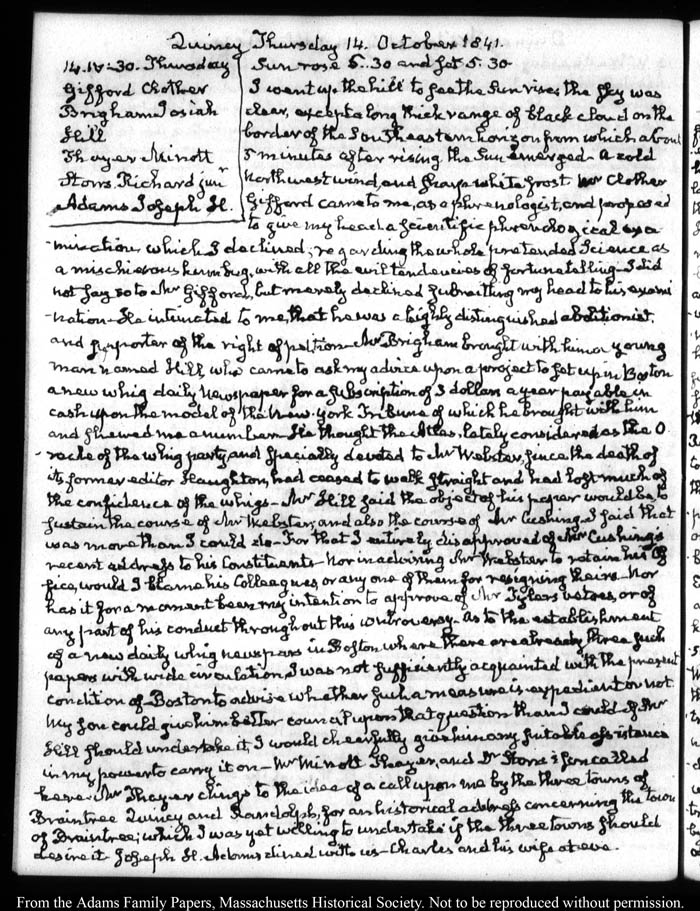 Quincy Thursday 14. October 1841.
14. IV-30. Thursday
Gifford Clother
Brigham Josiah
Hill
Thayer Minott
Storrs Richard junr
Adams Joseph H.
Sun rose 5..30 and set 5.30
I went up the hill to see the Sun rise; the sky was
clear, except a long thick range of black cloud on the
border of the Southeastern horizon from which about
5 minutes after rising the Sun emerged. A cold
Northwest wind, and sharp white frost Mr Clother
Gifford came to me, as a phrenologist, and proposed
to give my head a scientific phrenological exa-
mination which I declined; regarding the whole pretended Science as
a mischievous humbug, with all the evil tendencies of fortune telling. I did
not say so to Mr Gifford, but merely declined submitting my head to his exami
-nation. He intimated to me, that he was a highly distinguished abolitionist,
and supporter of the right of petition. Mr Brigham brought with him a young
man named Hill who came to ask my advice upon a project to set up in Boston
a new whig daily Newspaper for a subscription of 3 dollars a year payable in
cash upon the model of the New-York Tribune of which he brought with him
and shewed me a number. He thought the Atlas, lately considered as the O
-racle of the whig party, and specially devoted to Mr Webster, since the death of
its former editor Haughton, had ceased to walk straight and had lost much of
the confidence of the whigs. Mr Hill said the object of his paper would be, to
sustain the course of Mr Webster, and also the course of Mr Cushing. I said that
was more than I could do. For that I entirely disapproved of Mr Cushing's
recent address to his Constituents. Nor in advising Mr Webster to retain his Of
fice, would I blame his Colleagues, or any one of them for resigning theirs. Nor
has it for a moment been my intention to approve of Mr Tylers vetoes, or of
any part of his conduct throughout this controversy. As to the establishment
of a new daily whig newspaper in Boston where there are already three such
papers with wide circulation, I was not sufficiently acquainted with the present
condition of Boston to advise whether such a measure is expedient or not
My Son could give him better counsel upon that question than I could. If Mr
Hill should undertake it, I would cheerfully give him any suitable assistance
in my power to carry it on. Mr Minott Thayer, and Dr Storrs's son called
here. Mr Thayer clings to the idea of a call upon me by the three towns of
Braintree Quincy and Randolph, for an historical address concerning the town
of Braintree; which I was yet willing to undertake if the three towns should
desire it. Joseph H. Adams dined with us. Charles and his wife at eve.
From the Adams Family Papers, Massachusetts Historical Society. Not to be reproduced without permission.